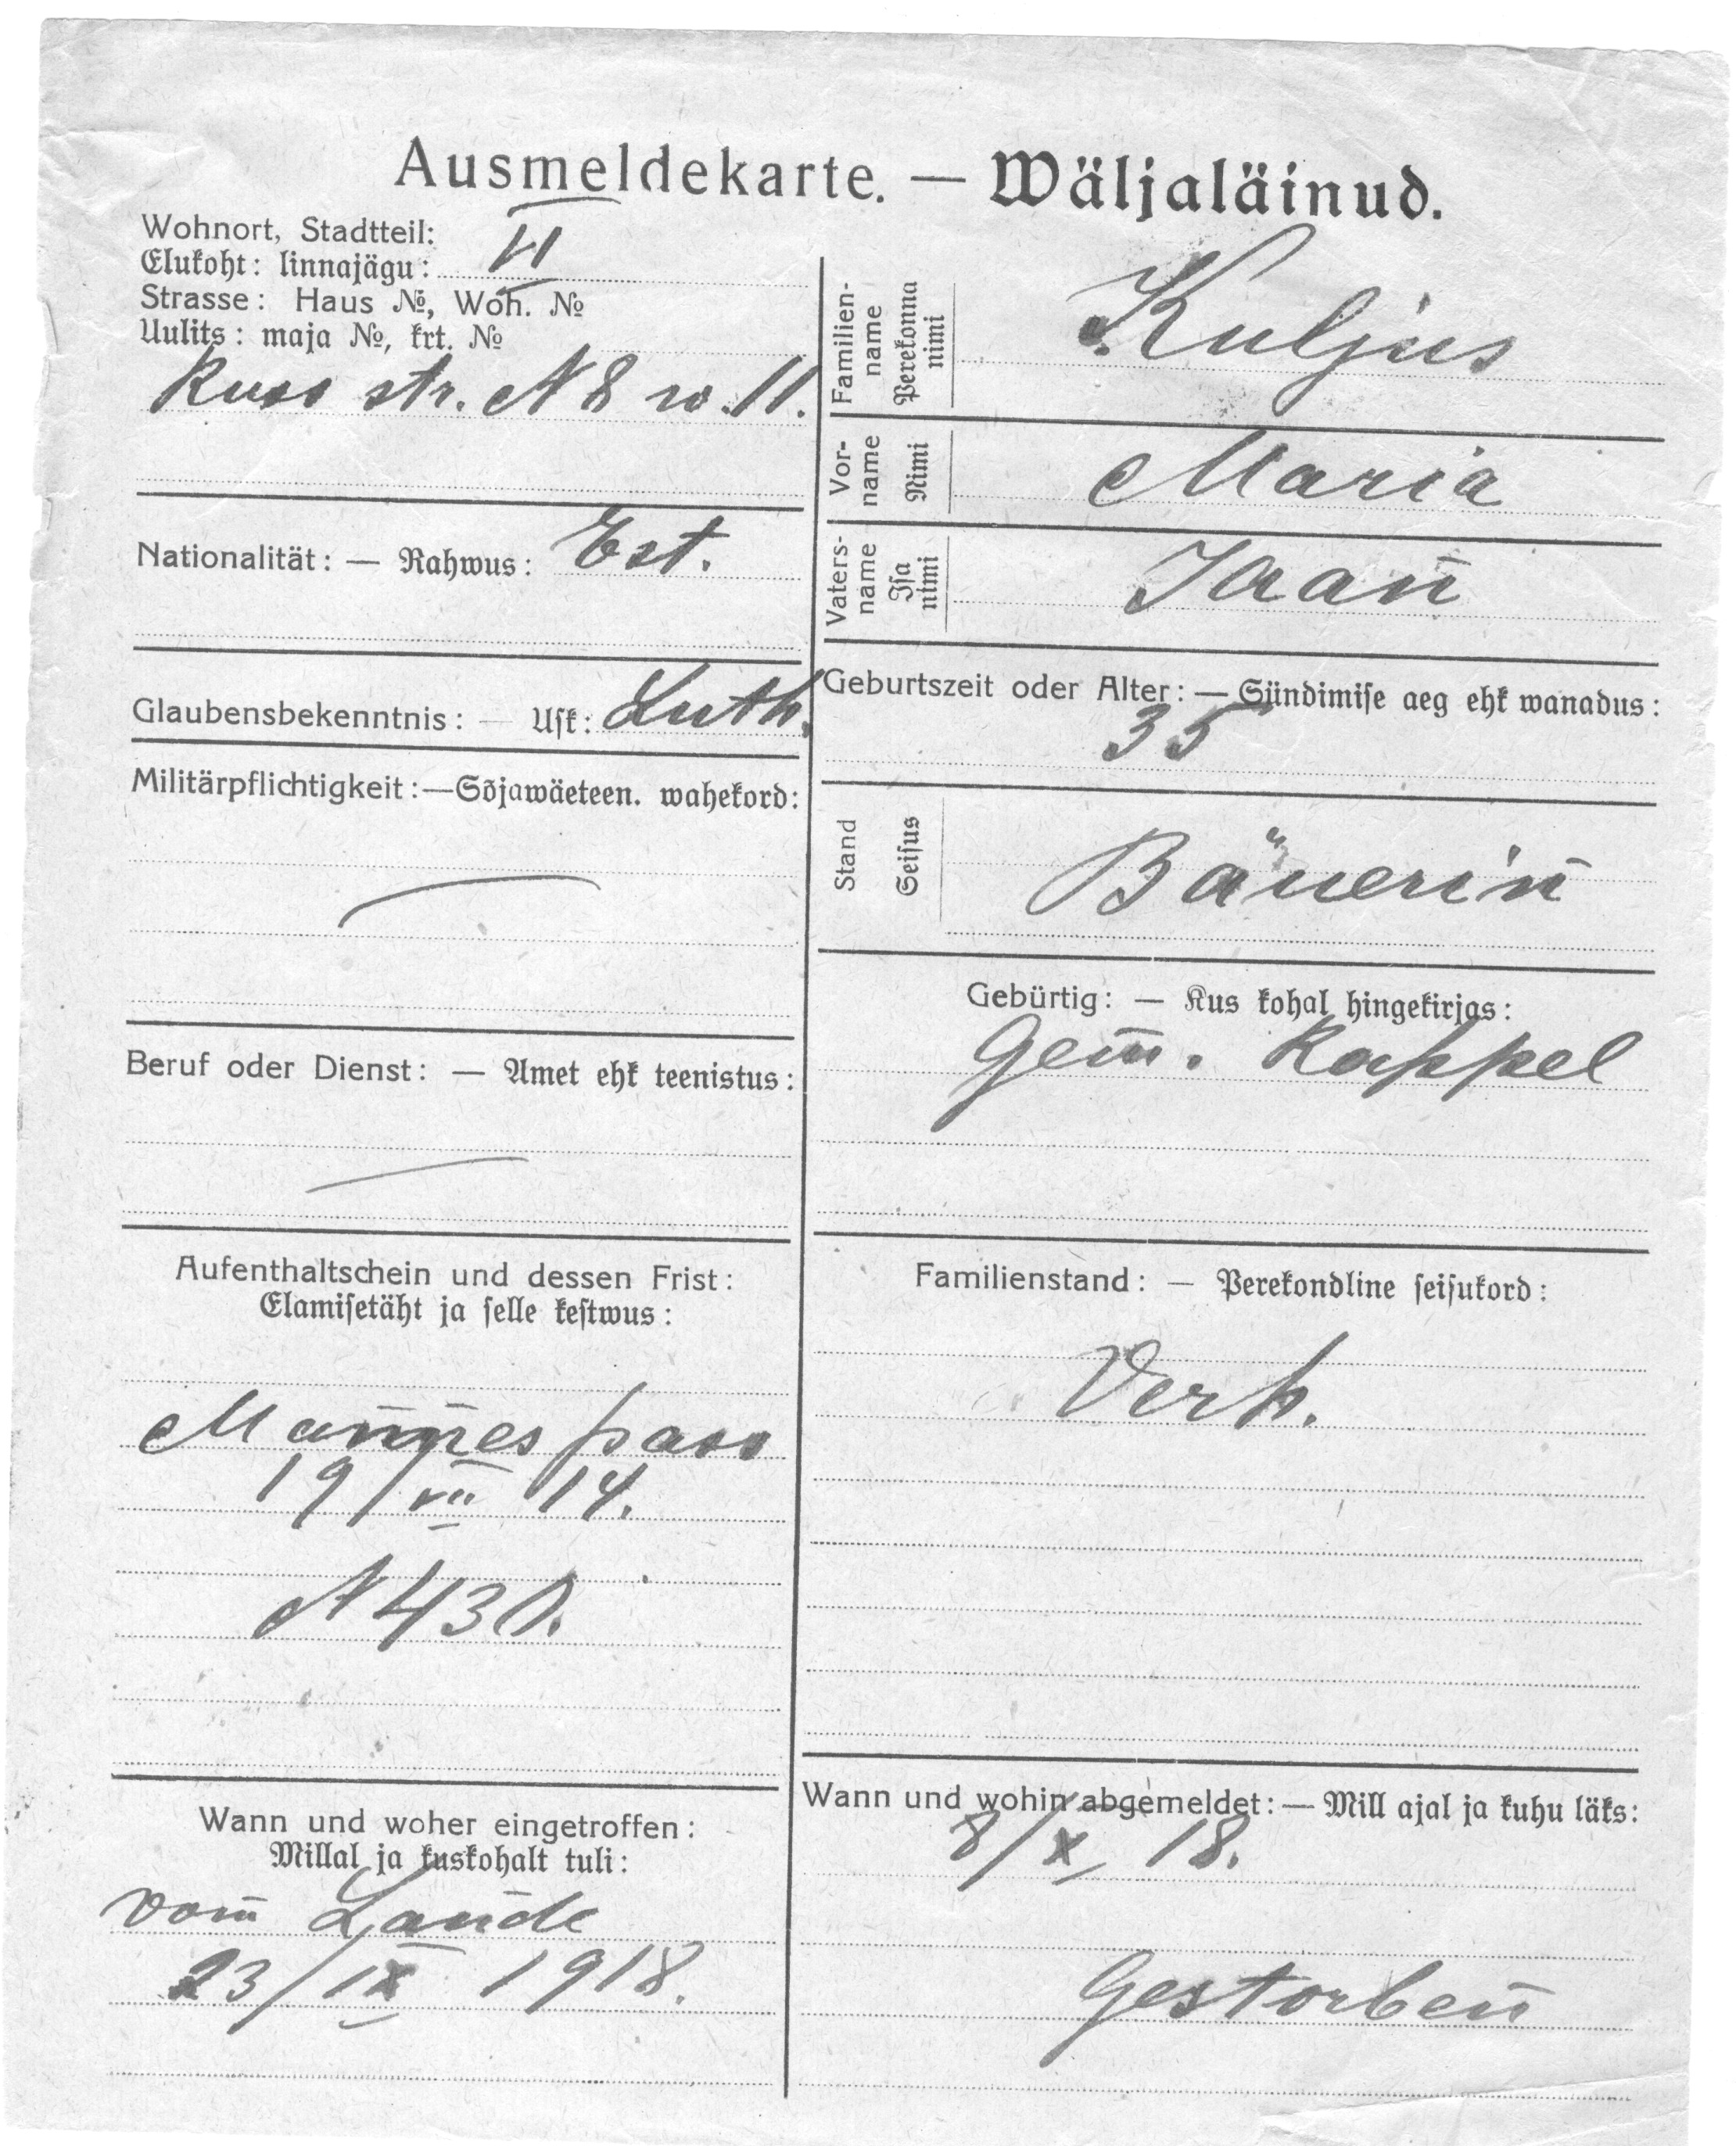 Ausmeldekarte. — Wäljaläinud.
Wohnort, Stadtteil:
Elukoht: linnajägu: VI
Strasse: Haus №, Woh. №
Uulits: maja №, krt. №
Russ str. N 8 w. 11.
Nationalität: — Rahwus: Est.
Glaubensbekenntnis: — Usk: Luth.
Militärpflichtigkeit: — Sõjawäeteen. wahekord:
Beruf oder Dienst: — Amet ehk teenistus:
Aufenthaltschein und dessen Frist:
Elamisetäht ja selle kestwus:
Mannes pass
19/VII 14.
N 430.
Wann und woher eingetroffen:
Millal ja kuskohalt tuli:
vom Lande
23/IX 1918.
Familien-
name
Perekonna
nimi
Kuljus
Vor-
name
Nimi
Maria
Vaters-
name
Isa
nimi
Jaan
Geburtszeit oder Alter: — Sündimise aeg ehk wanadus:
35
Stand
Seisus
Bäuerin
Gebürtig: — Kus kohal hingekirjas:
Gem. Rappel
Familienstand: — Perekondline seisukord:
Verh.
Wann und wohin abgemeldet: — Mill ajal ja kuhu läks:
8/X 18.
Gestorben